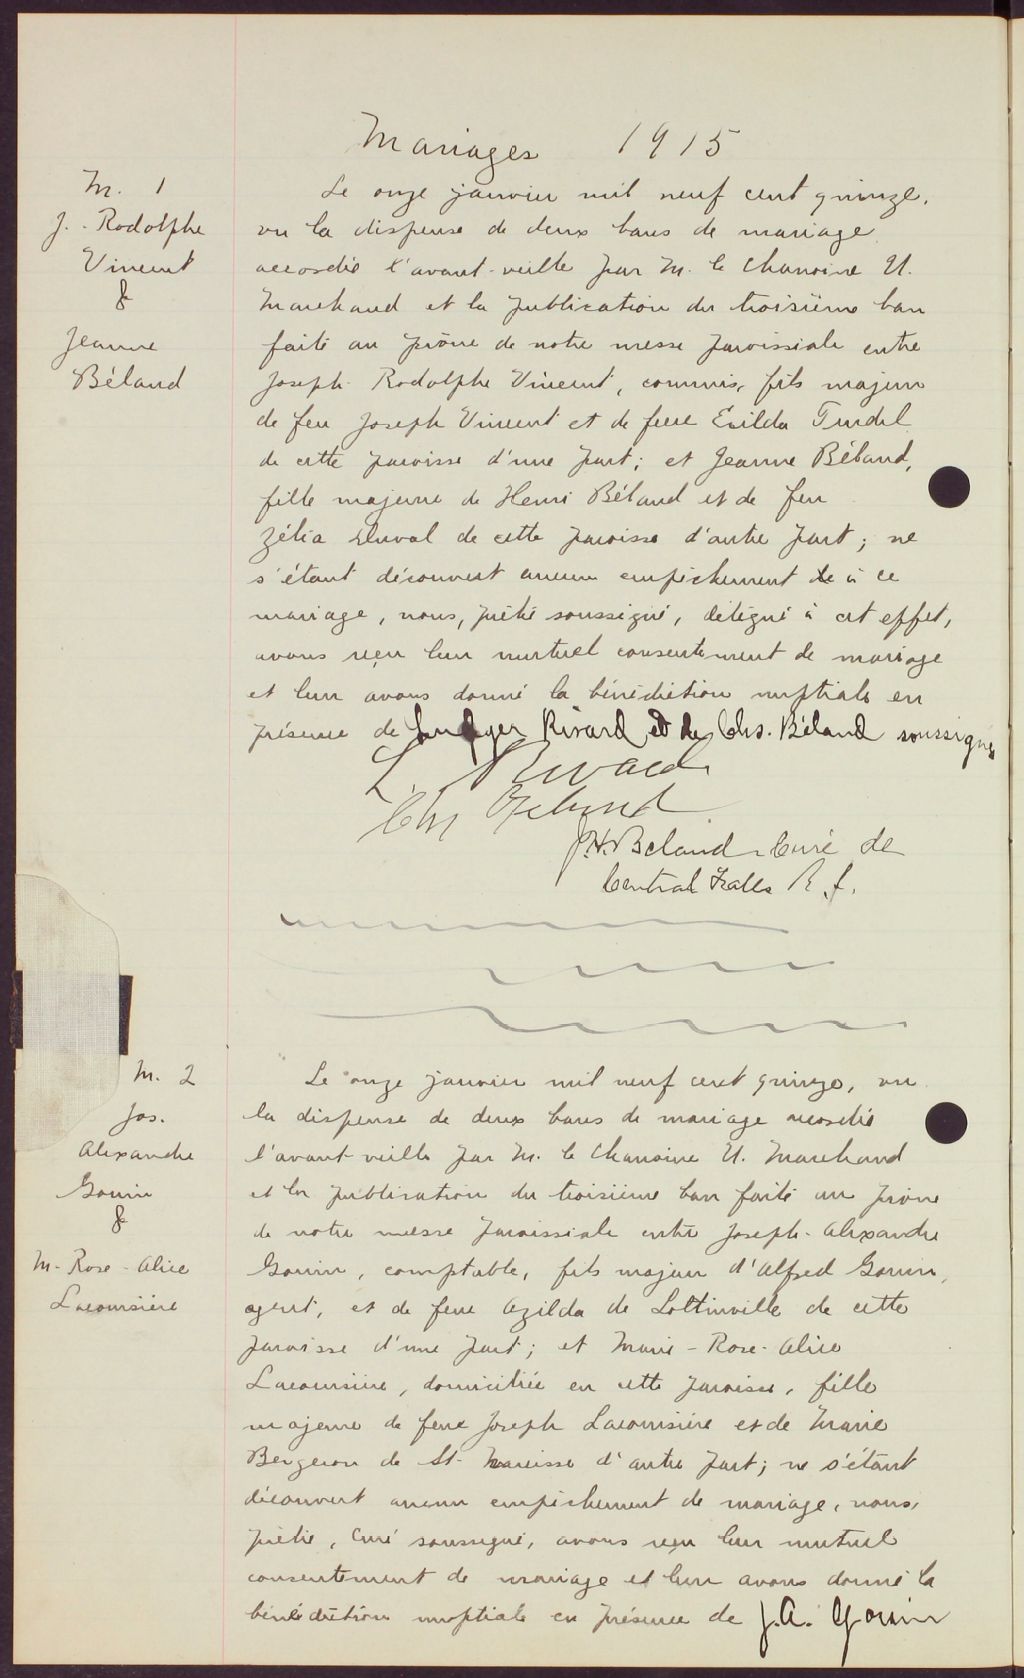 Mariages 1915
M. 1
J.-Rodolphe
Vincent
&
Jeanne
Béland
Le onze janvier mil neuf cent quinze,
vu la dispense de deux bans de mariage
accordée l'avant-veille par M. le Chanoine U.
Marchand et la publication du troisième ban
faite au prône de notre messe paroissiale entre
Joseph Rodolphe Vincent, commis, fils majeur
de feu Joseph Vincent et de feue Exilda Trudel
de cette paroisse d'une part; et Jeanne Béland,
fille majeure de Henri Béland et de feu
Zélia Duval de cette paroisse d'autre part; ne
s'étant découvert aucun empêchement à ce
mariage, nous, prêtre soussigné, délégué à cet effet,
avons reçu leur mutuel consentement de mariage
et leur avons donné la bénédiction nuptiale en
présence de Ludger Rivard et de Chs. Béland soussignés
L. Rivard
Chs Béland
J.H. Beland Curé de
Central Falls R.I.
M. 2
Jos.
Alexandre
Gouin
&
M-Rose-Alice
Lacoursière
Le onze janvier mil neuf cent quinze, vu
la dispense de deux bans de mariage accordée
l'avant-veille par M. le Chanoine U. Marchand
et la publication du troisième ban faite au prône
de notre messe paroissiale entre Joseph-Alexandre
Gouin, comptable, fils majeur d'Alfred Gouin,
agent, et de feue Azilda de Lottinville de cette
paroisse d'une part; et Marie-Rose-Alice
Lacoursière, domiciliée en cette paroisse, fille
majeure de feue Joseph Lacoursière et de Marie
Bergeron de St-Narcisse d'autre part; ne s'étant
découvert aucun empêchement de mariage, nous,
prêtre, curé soussigné, avons reçu leur mutuel
consentement de mariage et leur avons donné la
bénédiction nuptiale en présence de J.A. Gouin